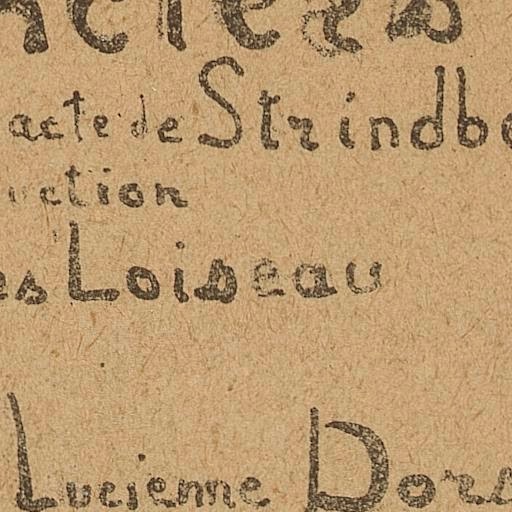 acte de Strindb
uction
es Loiseau
Lucienne Dors